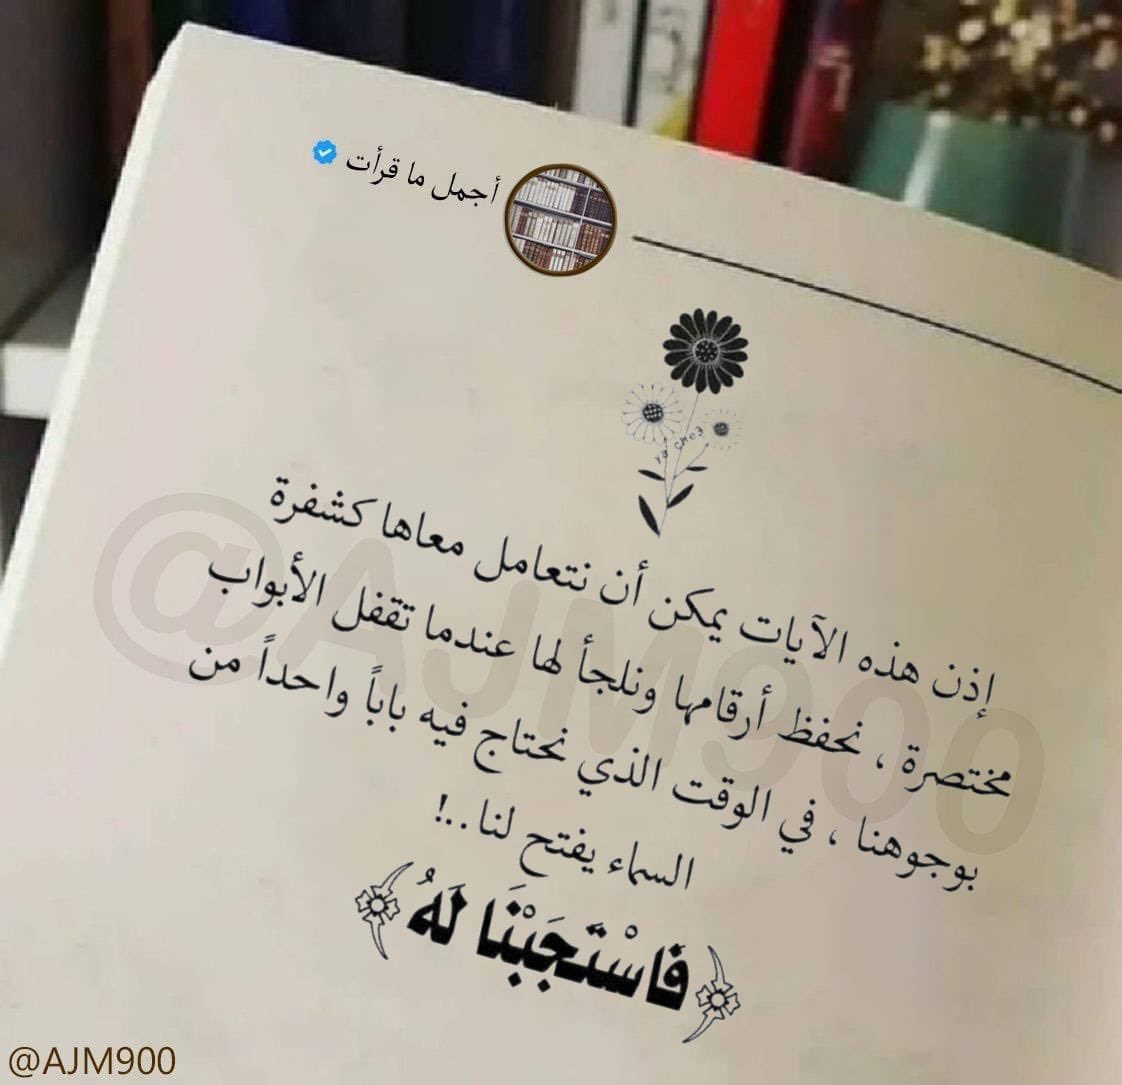 أجمل ما قرأت
ya chez
إذن هذه الآيات يمكن أن نتعامل معاها كشفرة
مختصرة ، نحفظ أرقامها ونلجأ لها عندما تقفل الأبواب
بوجوهنا ، في الوقت الذي نحتاج فيه باباً واحداً من
السماء يفتح لنا..!
﴿فَاسْتَجَبْنَا لَهُ﴾
@AJM900
@AJM900